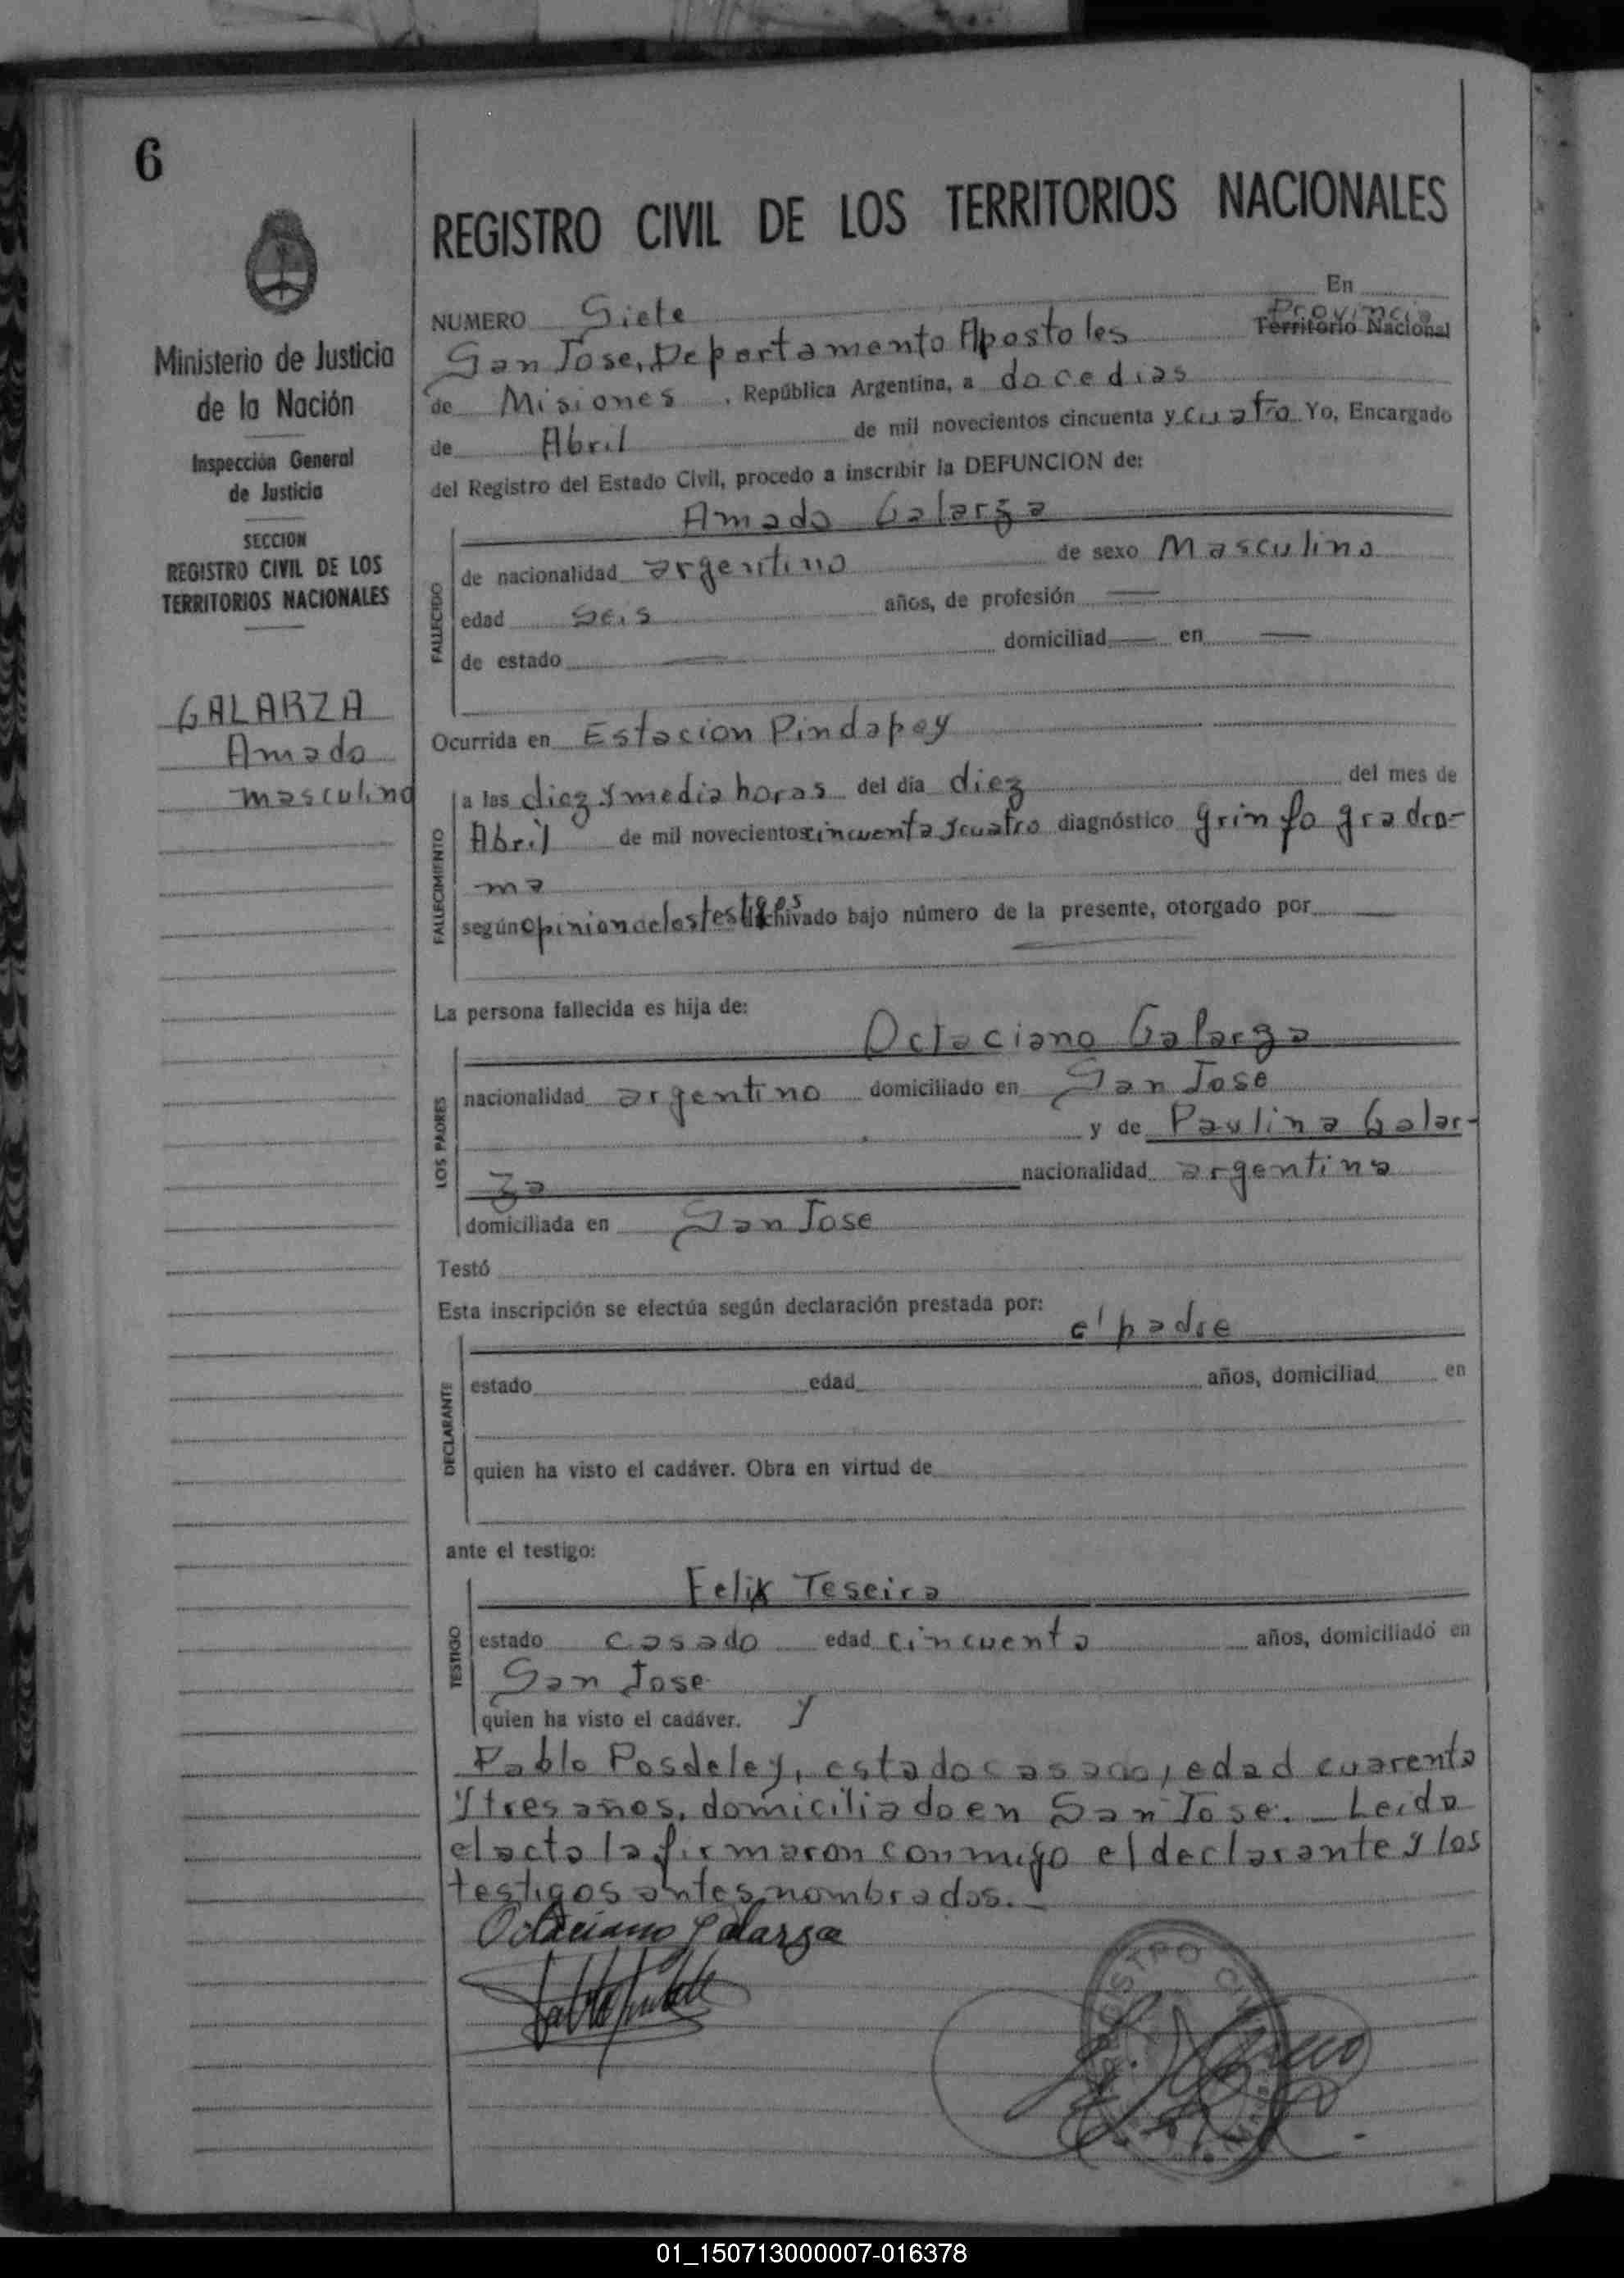 6
REGISTRO CIVIL DE LOS TERRITORIOS NACIONALES
Ministerio de Justicia
de la Nación
Inspección General
de Justicia
SECCION
REGISTRO CIVIL DE LOS
TERRITORIOS NACIONALES
GALARZA
Amado
masculino
NUMERO Siete En
Provincia
San Jose, Departamento Apostoles Territorio Nacional
de Misiones, República Argentina, a doce dias
de Abril de mil novecientos cincuenta y cuatro Yo, Encargado
del Registro del Estado Civil, procedo a inscribir la DEFUNCION de:
Amado Galarza
FALLECIDO
de nacionalidad argentino de sexo Masculino
edad Seis años, de profesión —
de estado — domiciliad — en —
Ocurrida en Estacion Pindapoy
FALLECIMIENTO
a las diez y media horas del día diez del mes de
Abril de mil novecientos cincuenta y cuatro diagnóstico grinfo gradro-
ma
según opinion de los testigos archivado bajo número de la presente, otorgado por —
La persona fallecida es hija de:
Octaciano Galarza
LOS PADRES
nacionalidad argentino domiciliado en San Jose
y de Paulina Galar-
za nacionalidad argentina
domiciliada en San Jose
Testó
Esta inscripción se efectúa según declaración prestada por:
el padre
DECLARANTE
estado edad años, domiciliad en
quien ha visto el cadáver. Obra en virtud de
ante el testigo:
Felix Teseira
TESTIGO
estado casado edad cincuenta años, domiciliado en
San Jose
quien ha visto el cadáver. y
Pablo Posdeley, estado casado, edad cuarenta
y tres años, domiciliado en San Jose. _ Leida
el acta la firmaron conmigo el declarante y los
testigos antes nombrados. _
Octaciano Galarza
01_150713000007-016378